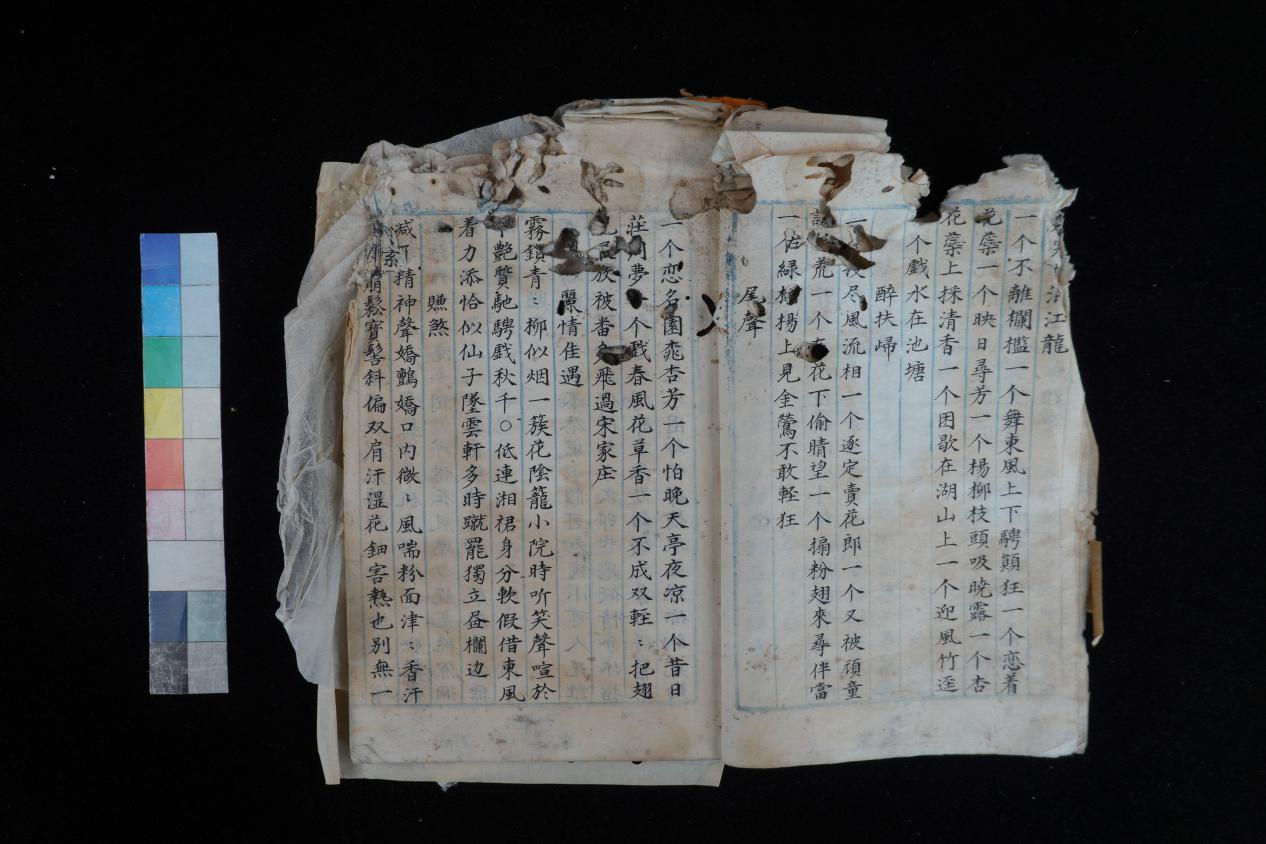 油江龍
一个不離欄檻一个舞東風上下騁顛狂一个恋着
花蘂一个映日尋芳一个楊柳枝頭吸曉露一个杏
花蘂上採清香一个困歇在湖山上一个迎風竹逕
个戲水在池塘
醉扶歸
尽風流相一个逐定賣花郎一个又被頑童
荒一个花下偷睛望一个搧粉翅來尋伴當
一佔綠楊上見金鶯不敢輕狂
尾聲
一个恋名園桃杏芳一个怕晚天亭夜凉一个昔日
莊周夢个戲春風花草香一个不成双輕〻把翅
族被飛過宋家庄
情佳遇
霧鎖青〻柳似烟一簇花陰籠小院時听笑聲喧於
艷質馳騁戲秋千○低連湘裙身分軟假借東風
着力添恰似仙子墜雲軒多時蹴罷獨立昼欄边
賺煞
减了精神聲嬌鸝嬌口内微〻風喘粉面津〻香汗
鬆寶髻斜偏双肩汗湿花鈿害熱也别無一